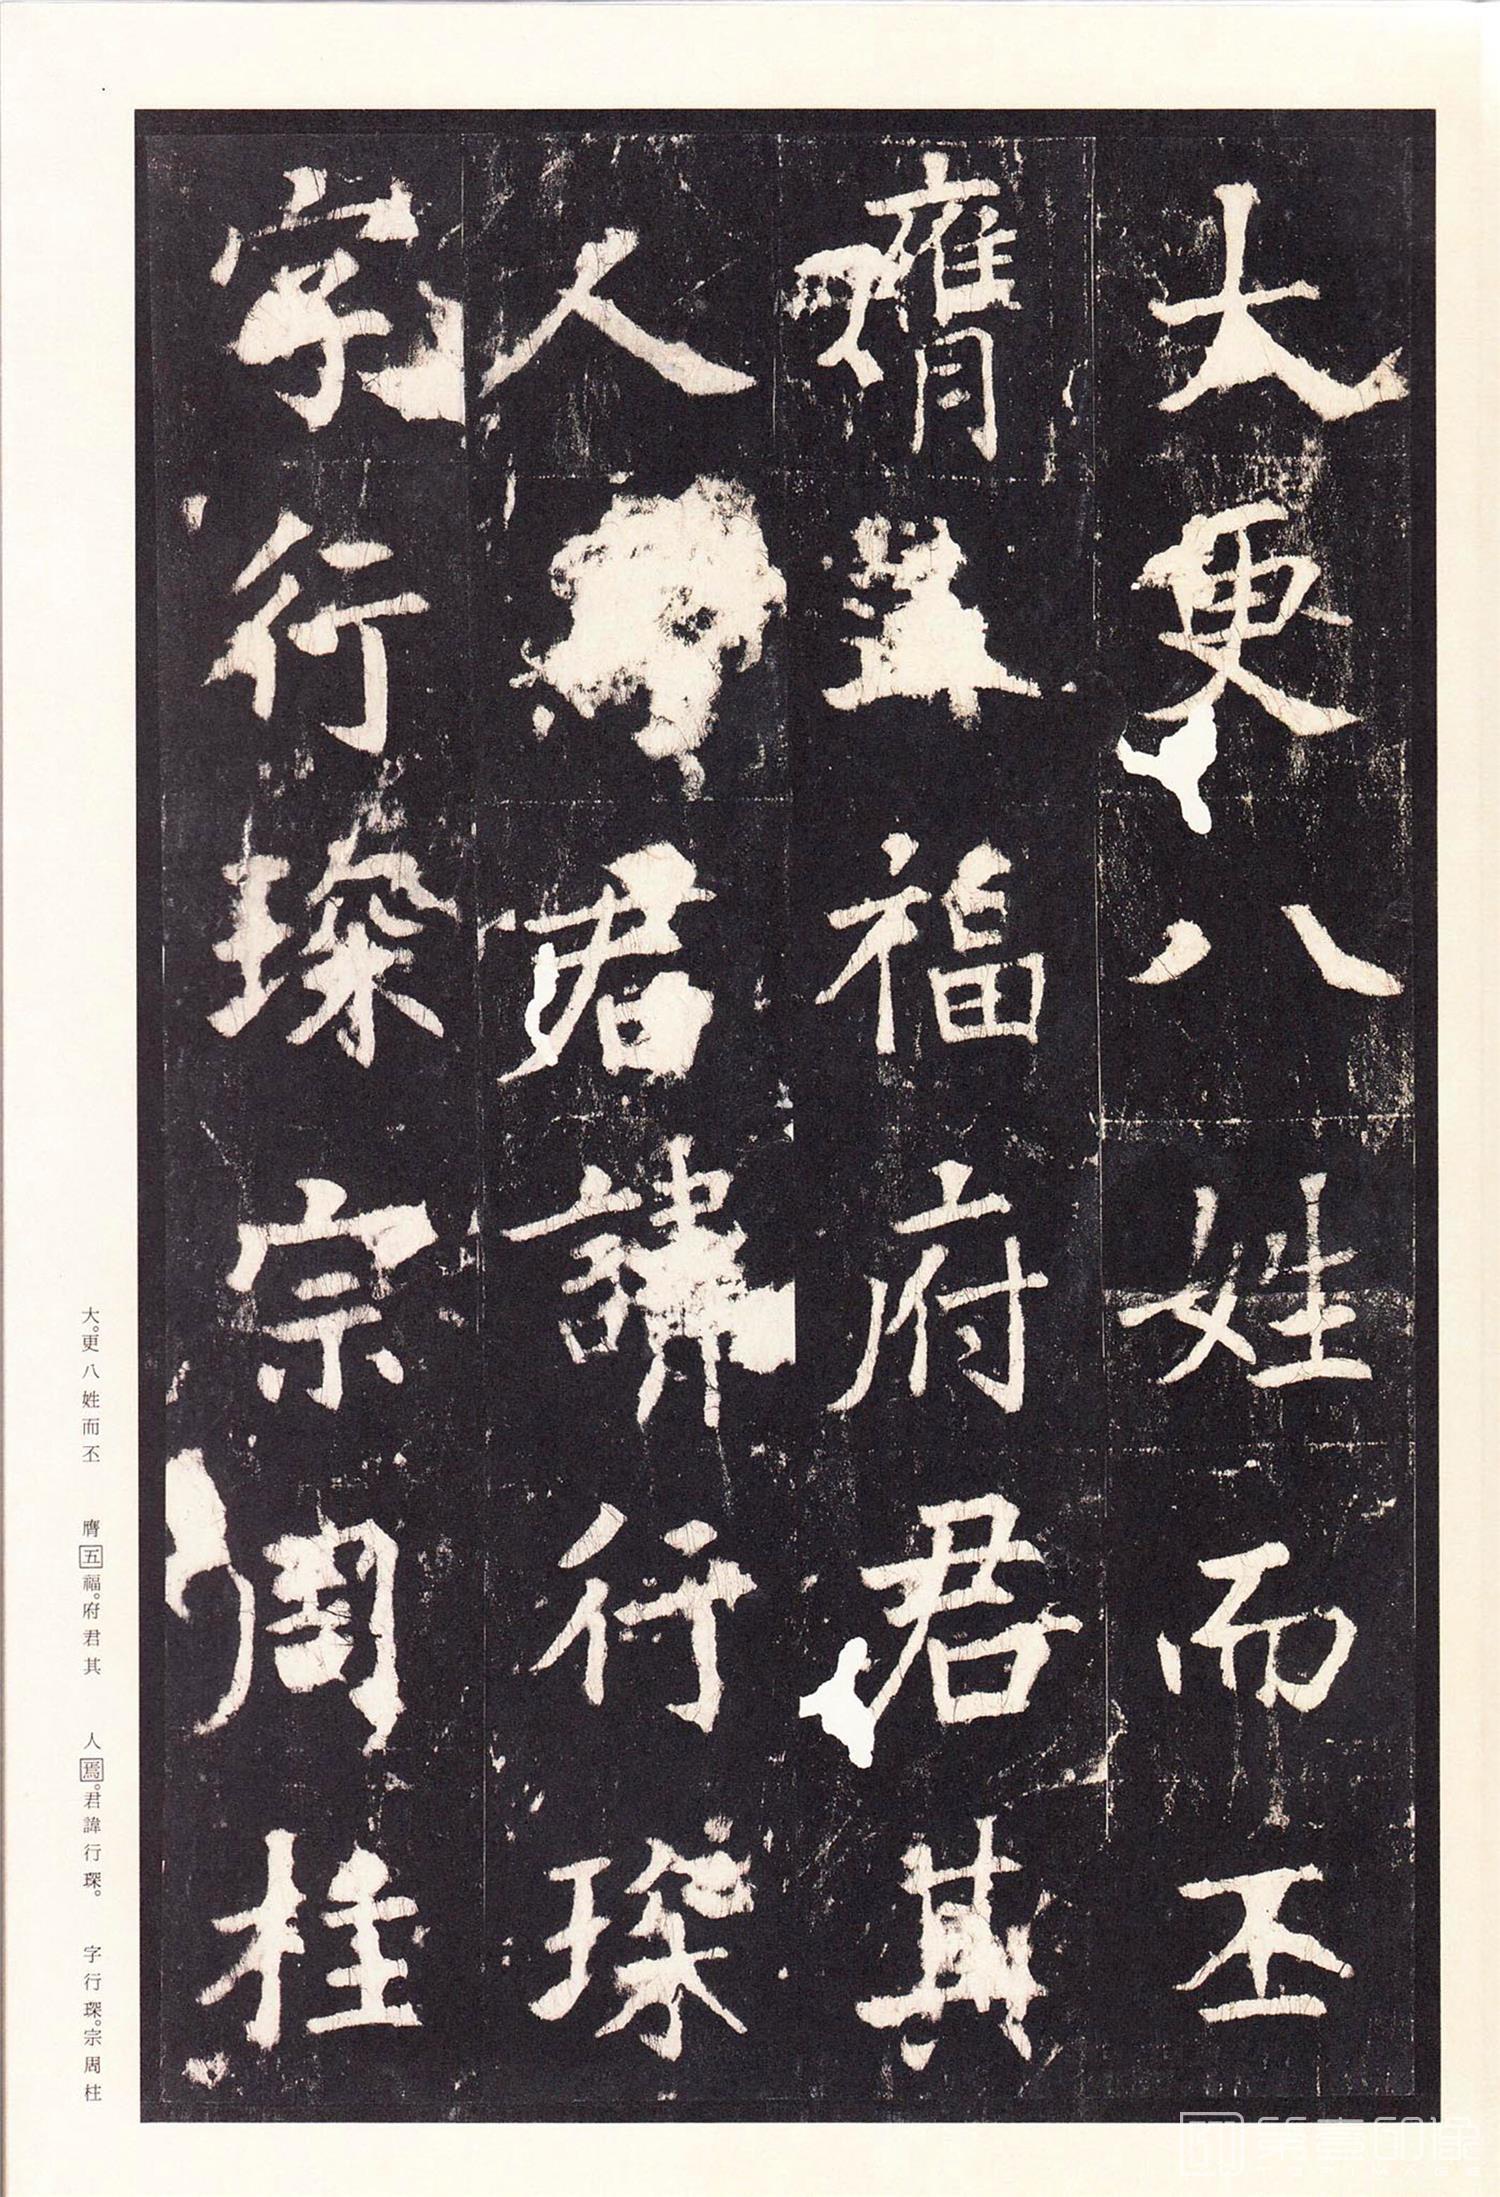 大更八姓而丕
膺五福府君其
人焉君諱行琛
字行琛宗周柱
大。更八姓而丕　膺五福。府君其　人焉。君諱行琛。　字行琛。宗周柱